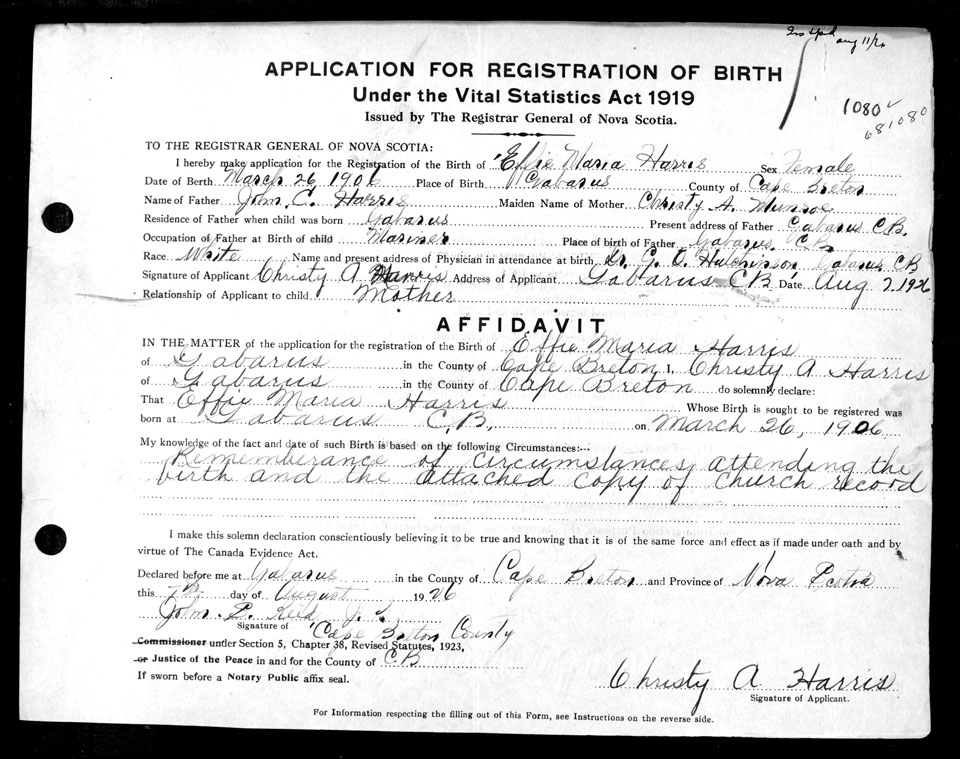 Aug 11/26
APPLICATION FOR REGISTRATION OF BIRTH
Under the Vital Statistics Act 1919
Issued by The Registrar General of Nova Scotia.
1080
681080
TO THE REGISTRAR GENERAL OF NOVA SCOTIA:
I hereby make application for the Registration of the Birth of Effie Maria Harris Sex Female
Date of Berth March 26 1906 Place of Birth Gabarus County of Cape Breton
Name of Father John C. Harris Maiden Name of Mother Christy A. Munroe
Residence of Father when child was born Gabarus Present address of Father Gabarus C.B.
Occupation of Father at Birth of child Mariner Place of birth of Father Gabarus C.B.
Race White Name and present address of Physician in attendance at birth Dr. G. O. Hutchinson Gabarus CB
Signature of Applicant Christy A Harris Address of Applicant Gabarus CB Date Aug 7 1926
Relationship of Applicant to child Mother
AFFIDAVIT
IN THE MATTER of the application for the registration of the Birth of Effie Maria Harris
of Gabarus in the County of Cape Breton I, Christy A Harris
of Gabarus in the County of Cape Breton do solemnly declare:
That Effie Maria Harris Whose Birth is sought to be registered was
born at Gabarus C.B., on March 26, 1906
My knowledge of the fact and date of such Birth is based on the following Circumstances:--
Rimemberance of circumstances attending the
birth and the attached copy of church record
I make this solemn declaration conscientiously believing it to be true and knowing that it is of the same force and effect as if made under oath and by
virtue of The Canada Evidence Act.
Declared before me at Gabarus in the County of Cape Breton and Province of Nova Scotia
this 7th day of August 1926
John E. Reid J.P.
Signature of Cape Breton County
Commissioner under Section 5, Chapter 38, Revised Statutes, 1923,
or Justice of the Peace in and for the County of CB
If sworn before a Notary Public affix seal.
Christy A Harris
Signature of Applicant.
For Information respecting the filling out of this Form, see Instructions on the reverse side.